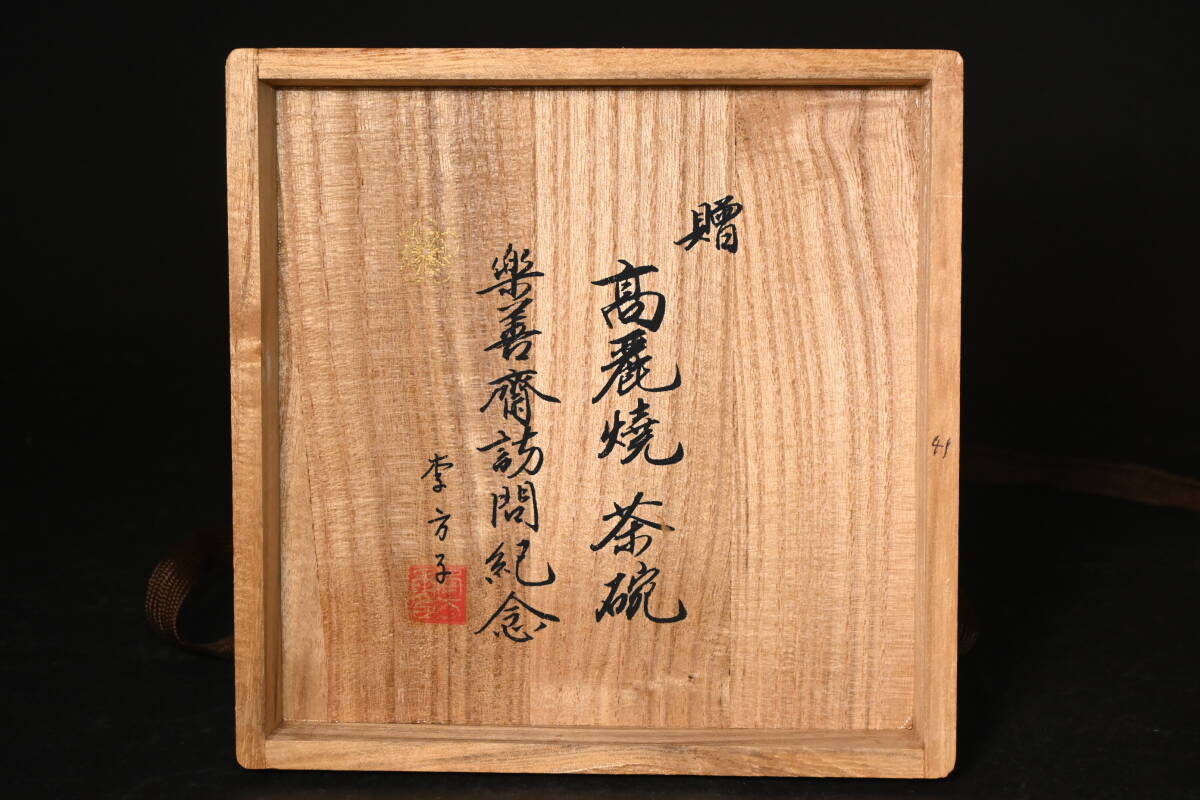 贈
高麗燒 茶碗
樂善齋訪問紀念
李方子